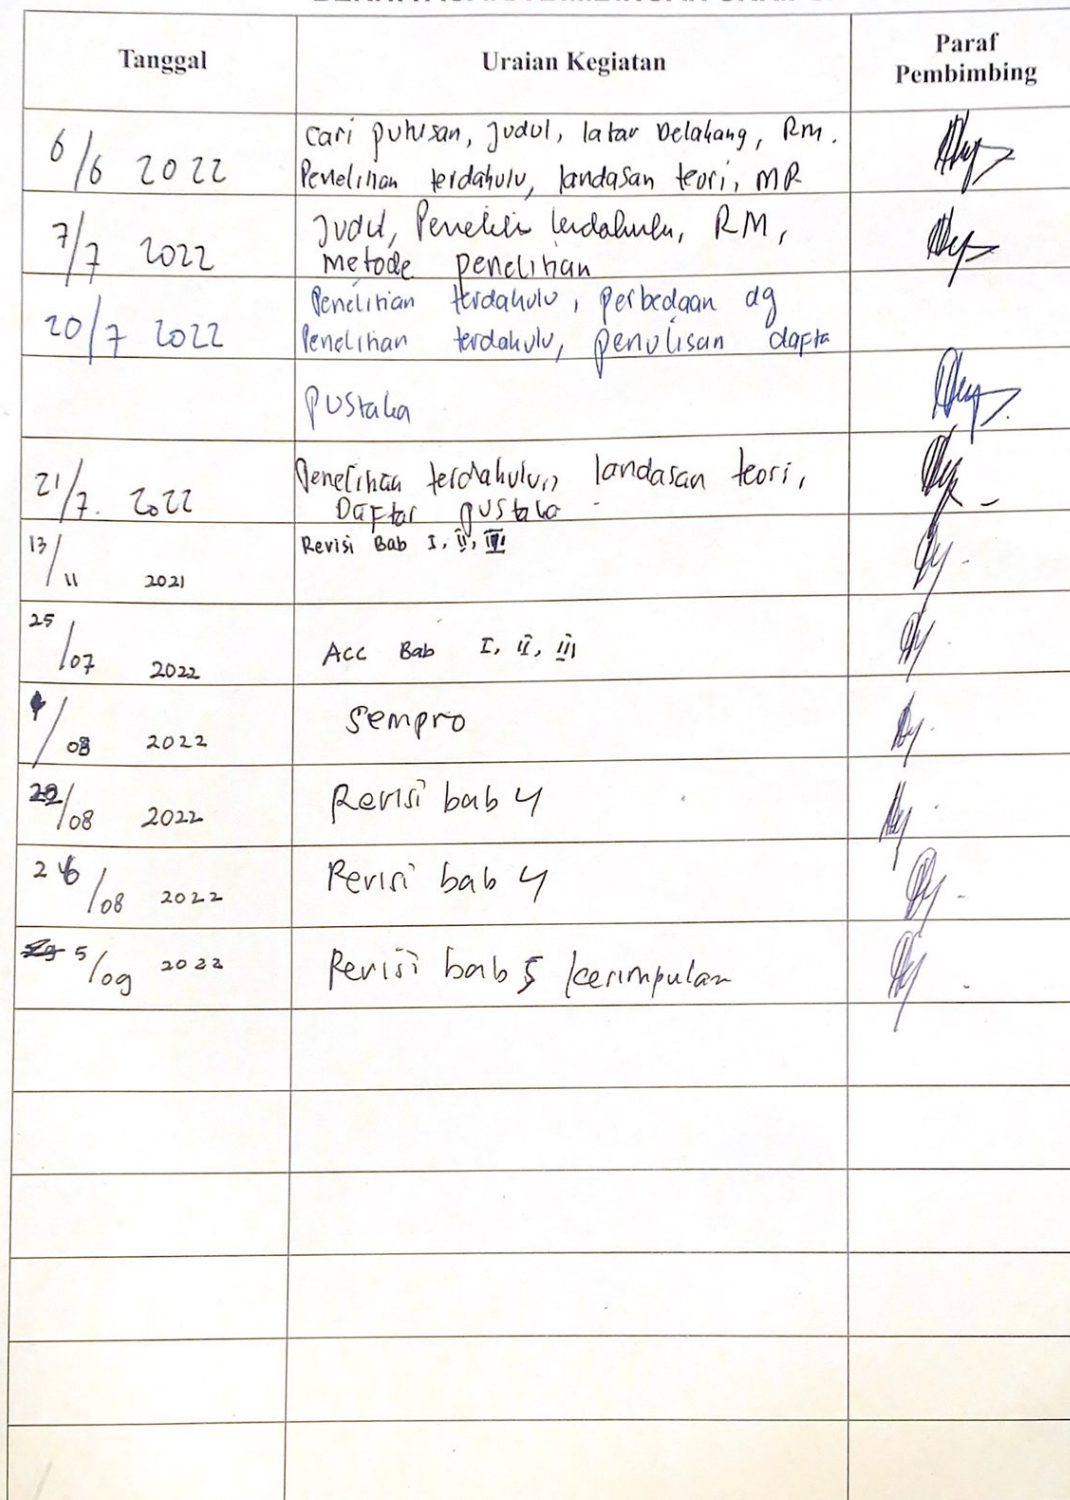 Tanggal
Uraian Kegiatan
Paraf
Pembimbing
6/6 2022
Cari putusan, Judul, latar belakang, RM.
Penelitian terdahulu, landasan teori, MP
7/7 2022
Judul, Peneliti terdahulu, RM,
metode penelitian
20/7 2022
Penelitian terdahulu, perbedaan dg
Penelitian terdahulu, penulisan dafta
pustaka
21/7. 2022
Penelitian terdahulu, landasan teori,
Daftar pustaka
13/11 2021
Revisi Bab I, II, III
25/07 2022
Acc Bab I, II, III
/08 2022
Sempro
/08 2022
Revisi bab 4
26/08 2022
Revisi bab 4
5/09 2022
Revisi bab 5 kesimpulan